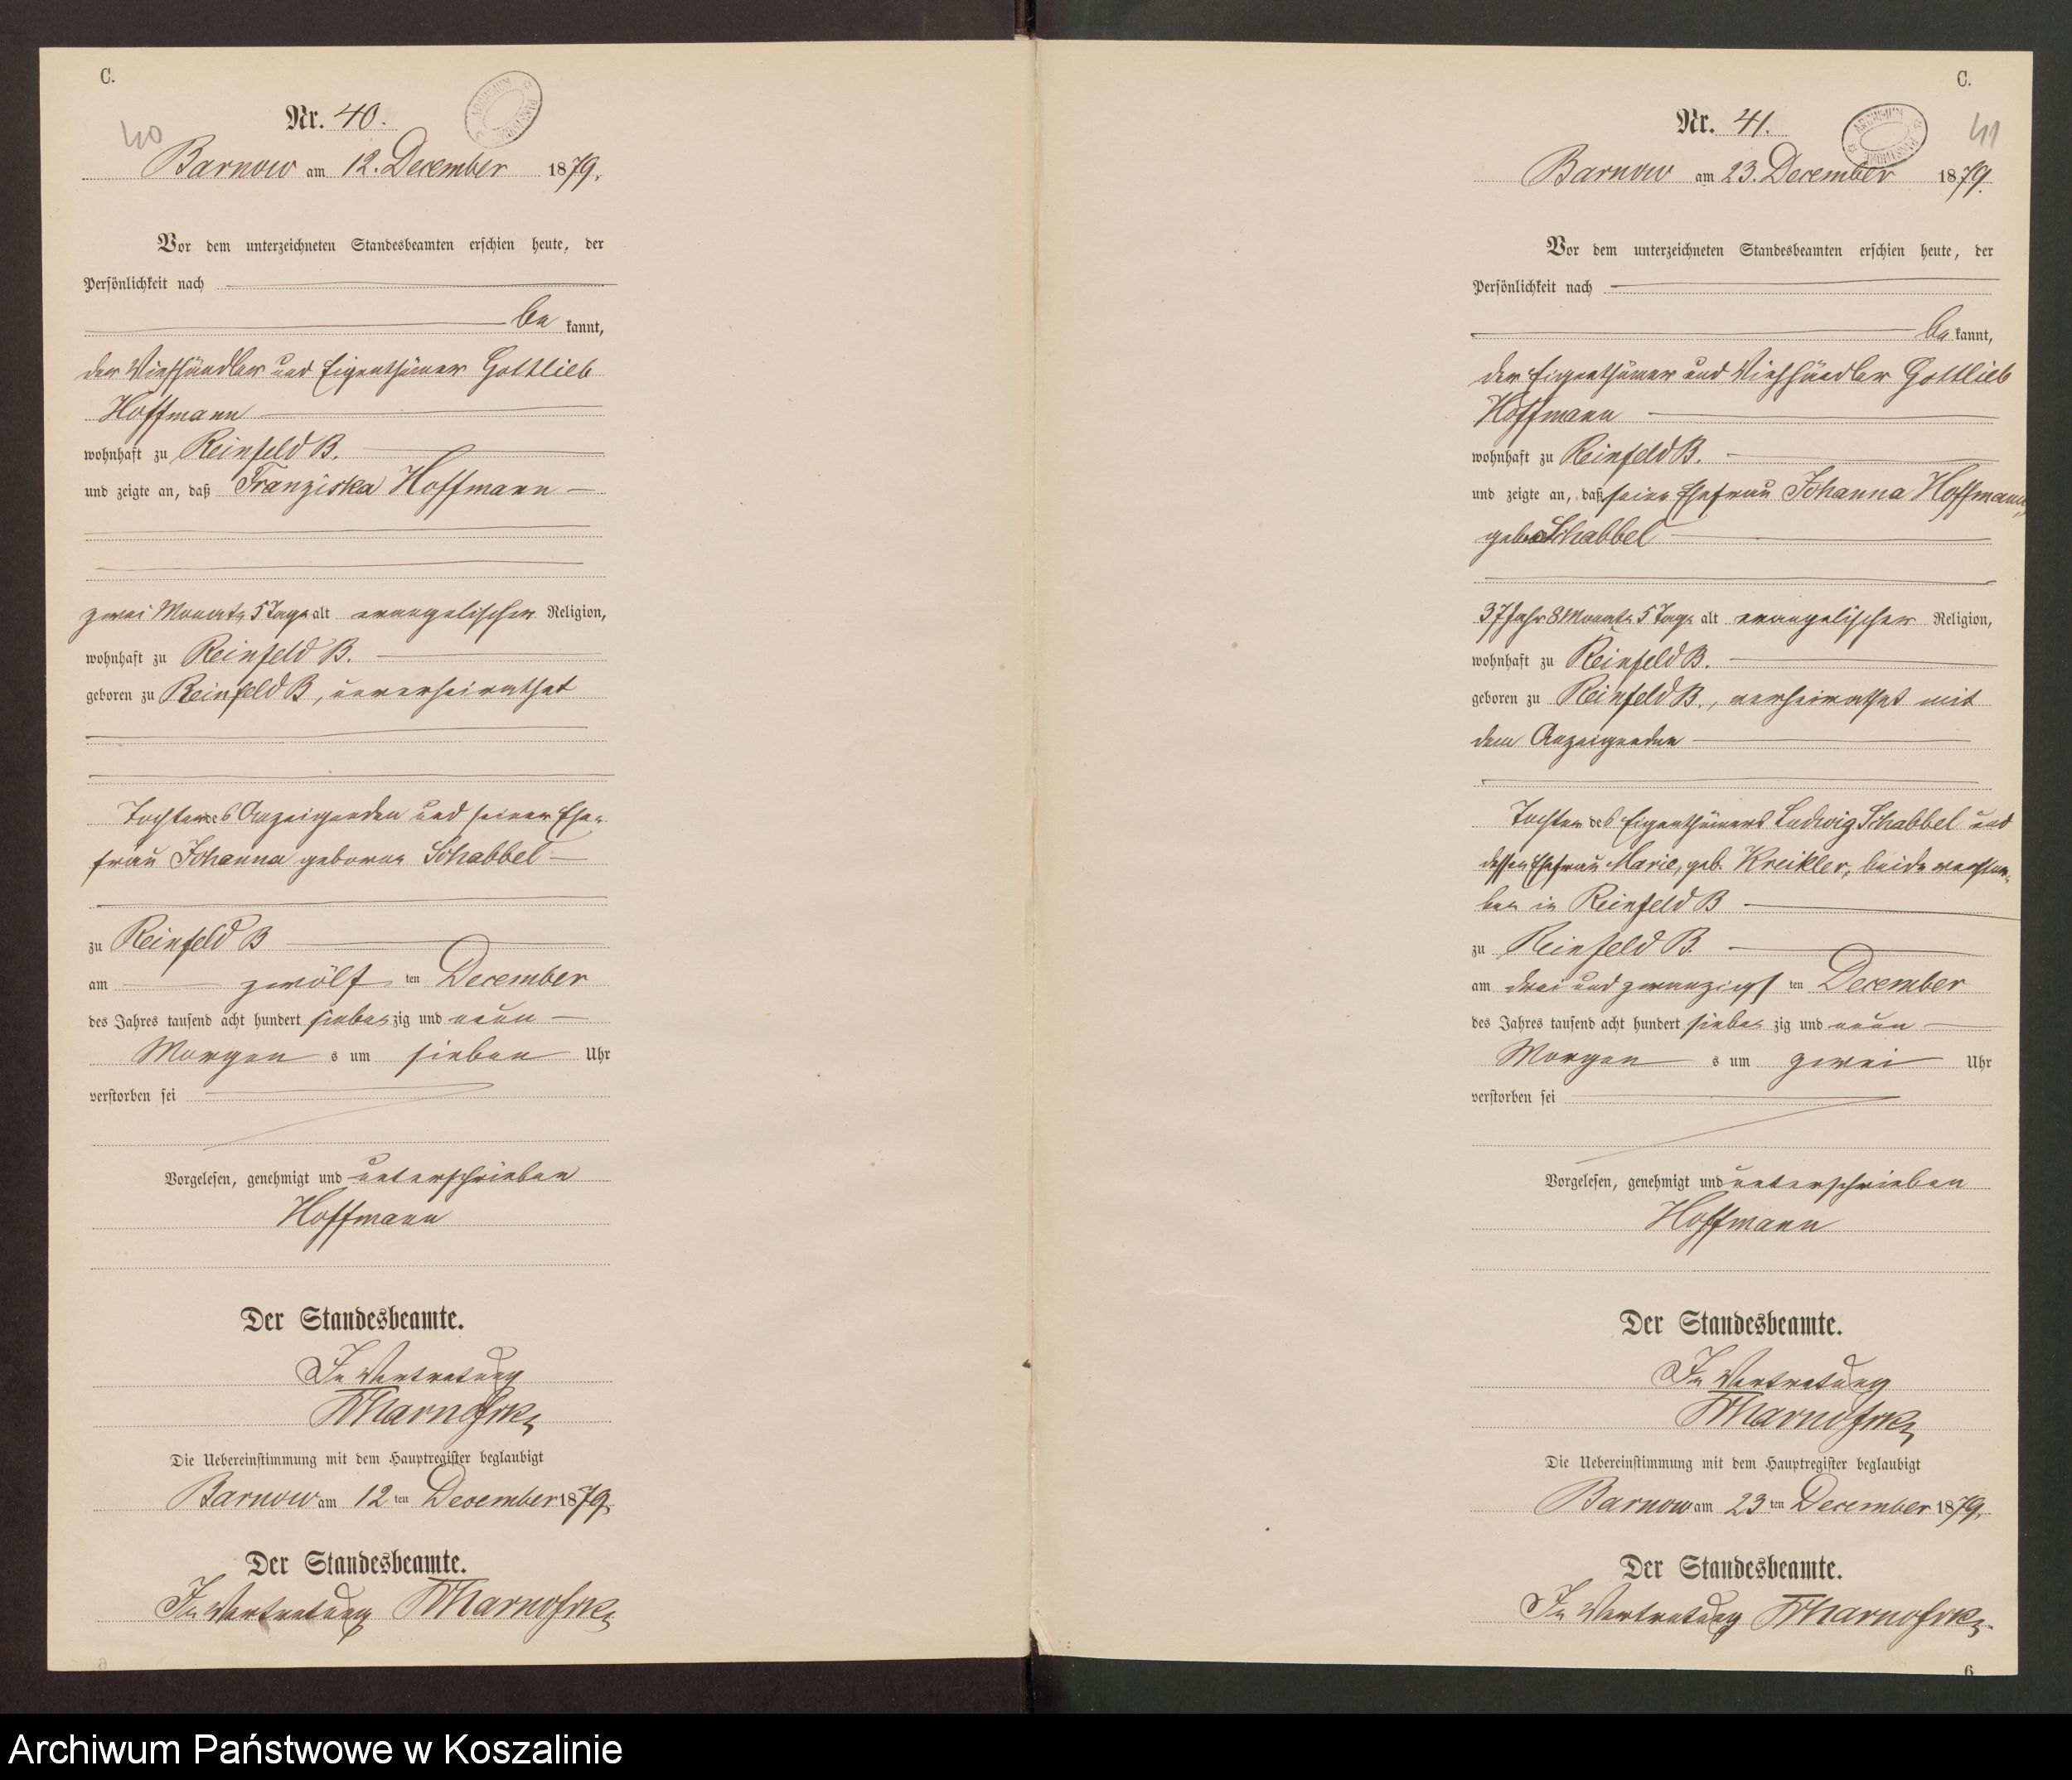 C.
Nr. 40.
40
Barnow am 12. December 1879.
Vor dem unterzeichneten Standesbeamten erschien heute, der
Persönlichkeit nach
be kannt,
der Viehhändler und Eigenthümer Gottlieb
Hoffmann
wohnhaft zu Reinfeld B.
und zeigte an, daß Franziska Hoffmann
zwei Monate 5 Tage alt evangelischer Religion,
wohnhaft zu Reinfeld B.
geboren zu Reinfeld B, unverheirathet
Tochter des Anzeigenden und seiner Ehe-
frau Johanna geborne Schabbel
zu Reinfeld B
am zwölf ten December
des Jahres tausend acht hundert siebenzig und neun
Morgen s um sieben Uhr
verstorben sei
Vorgelesen, genehmigt und unterschrieben
Hoffmann
Der Standesbeamte.
In Vertretung
Die Uebereinstimmung mit dem Hauptregister beglaubigt
Barnow am 12 ten December 1879.
Der Standesbeamte.
In Vertretung
C.
Nr. 41.
ARCHIWUM PAŃSTWOWE
41
Barnow am 23. December 1879.
Vor dem unterzeichneten Standesbeamten erschien heute, der
Persönlichkeit nach
be kannt,
der Eigenthümer und Viehhändler Gottlieb
Hoffmann
wohnhaft zu Reinfeld B.
und zeigte an, daß seine Ehefrau Johanna Hoffmann,
geborne Schabbel
37 Jahr 8 Monate 5 Tage alt evangelischer Religion,
wohnhaft zu Reinfeld B.
geboren zu Reinfeld B., verheirathet mit
dem Anzeigenden
Tochter des Eigenthümers Ludwig Schabbel und
dessen Ehefrau Marie, geb. Kreikler, beide verstor-
ben in Reinfeld B
zu Reinfeld B.
am drei und zwanzigs ten December
des Jahres tausend acht hundert sieben zig und neun
Morgen s um zwei Uhr
verstorben sei
Vorgelesen, genehmigt und unterschrieben
Hoffmann
Der Standesbeamte.
In Vertretung
Die Uebereinstimmung mit dem Hauptregister beglaubigt
Barnow am 23 ten December 1879.
Der Standesbeamte.
In Vertretung
6
Archiwum Państwowe w Koszalinie